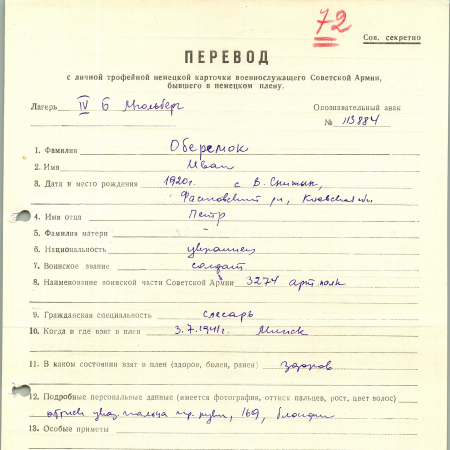 72
Сов. секретно
ПЕРЕВОД
с личной трофейной немецкой карточки военнослужащего Советской Армии,
бывшего в немецком плену.
Лагерь IV Б Мюльберг Опознавательный знак
№ 113884
1. Фамилия Оберемок
2. Имя Иван
3. Дата и место рождения 1920г. с В. Снитын,
Фастовский р-н, Киевская обл
4. Имя отца Петр
5. Фамилия матери
6. Национальность украинец
7. Воинское звание солдат
8. Наименование воинской части Советской Армии 3274 арт. полк
9. Гражданская специальность слесарь
10. Когда и где взят в плен 3.7.1941г. Минск
11. В каком состоянии взят в плен (здоров, болен, ранен) здоров
12. Подробные персональные данные (имеется фотография, оттиск пальцев, рост, цвет волос)
оттиск указ. пальца пр. руки, 169, блондин
13. Особые приметы